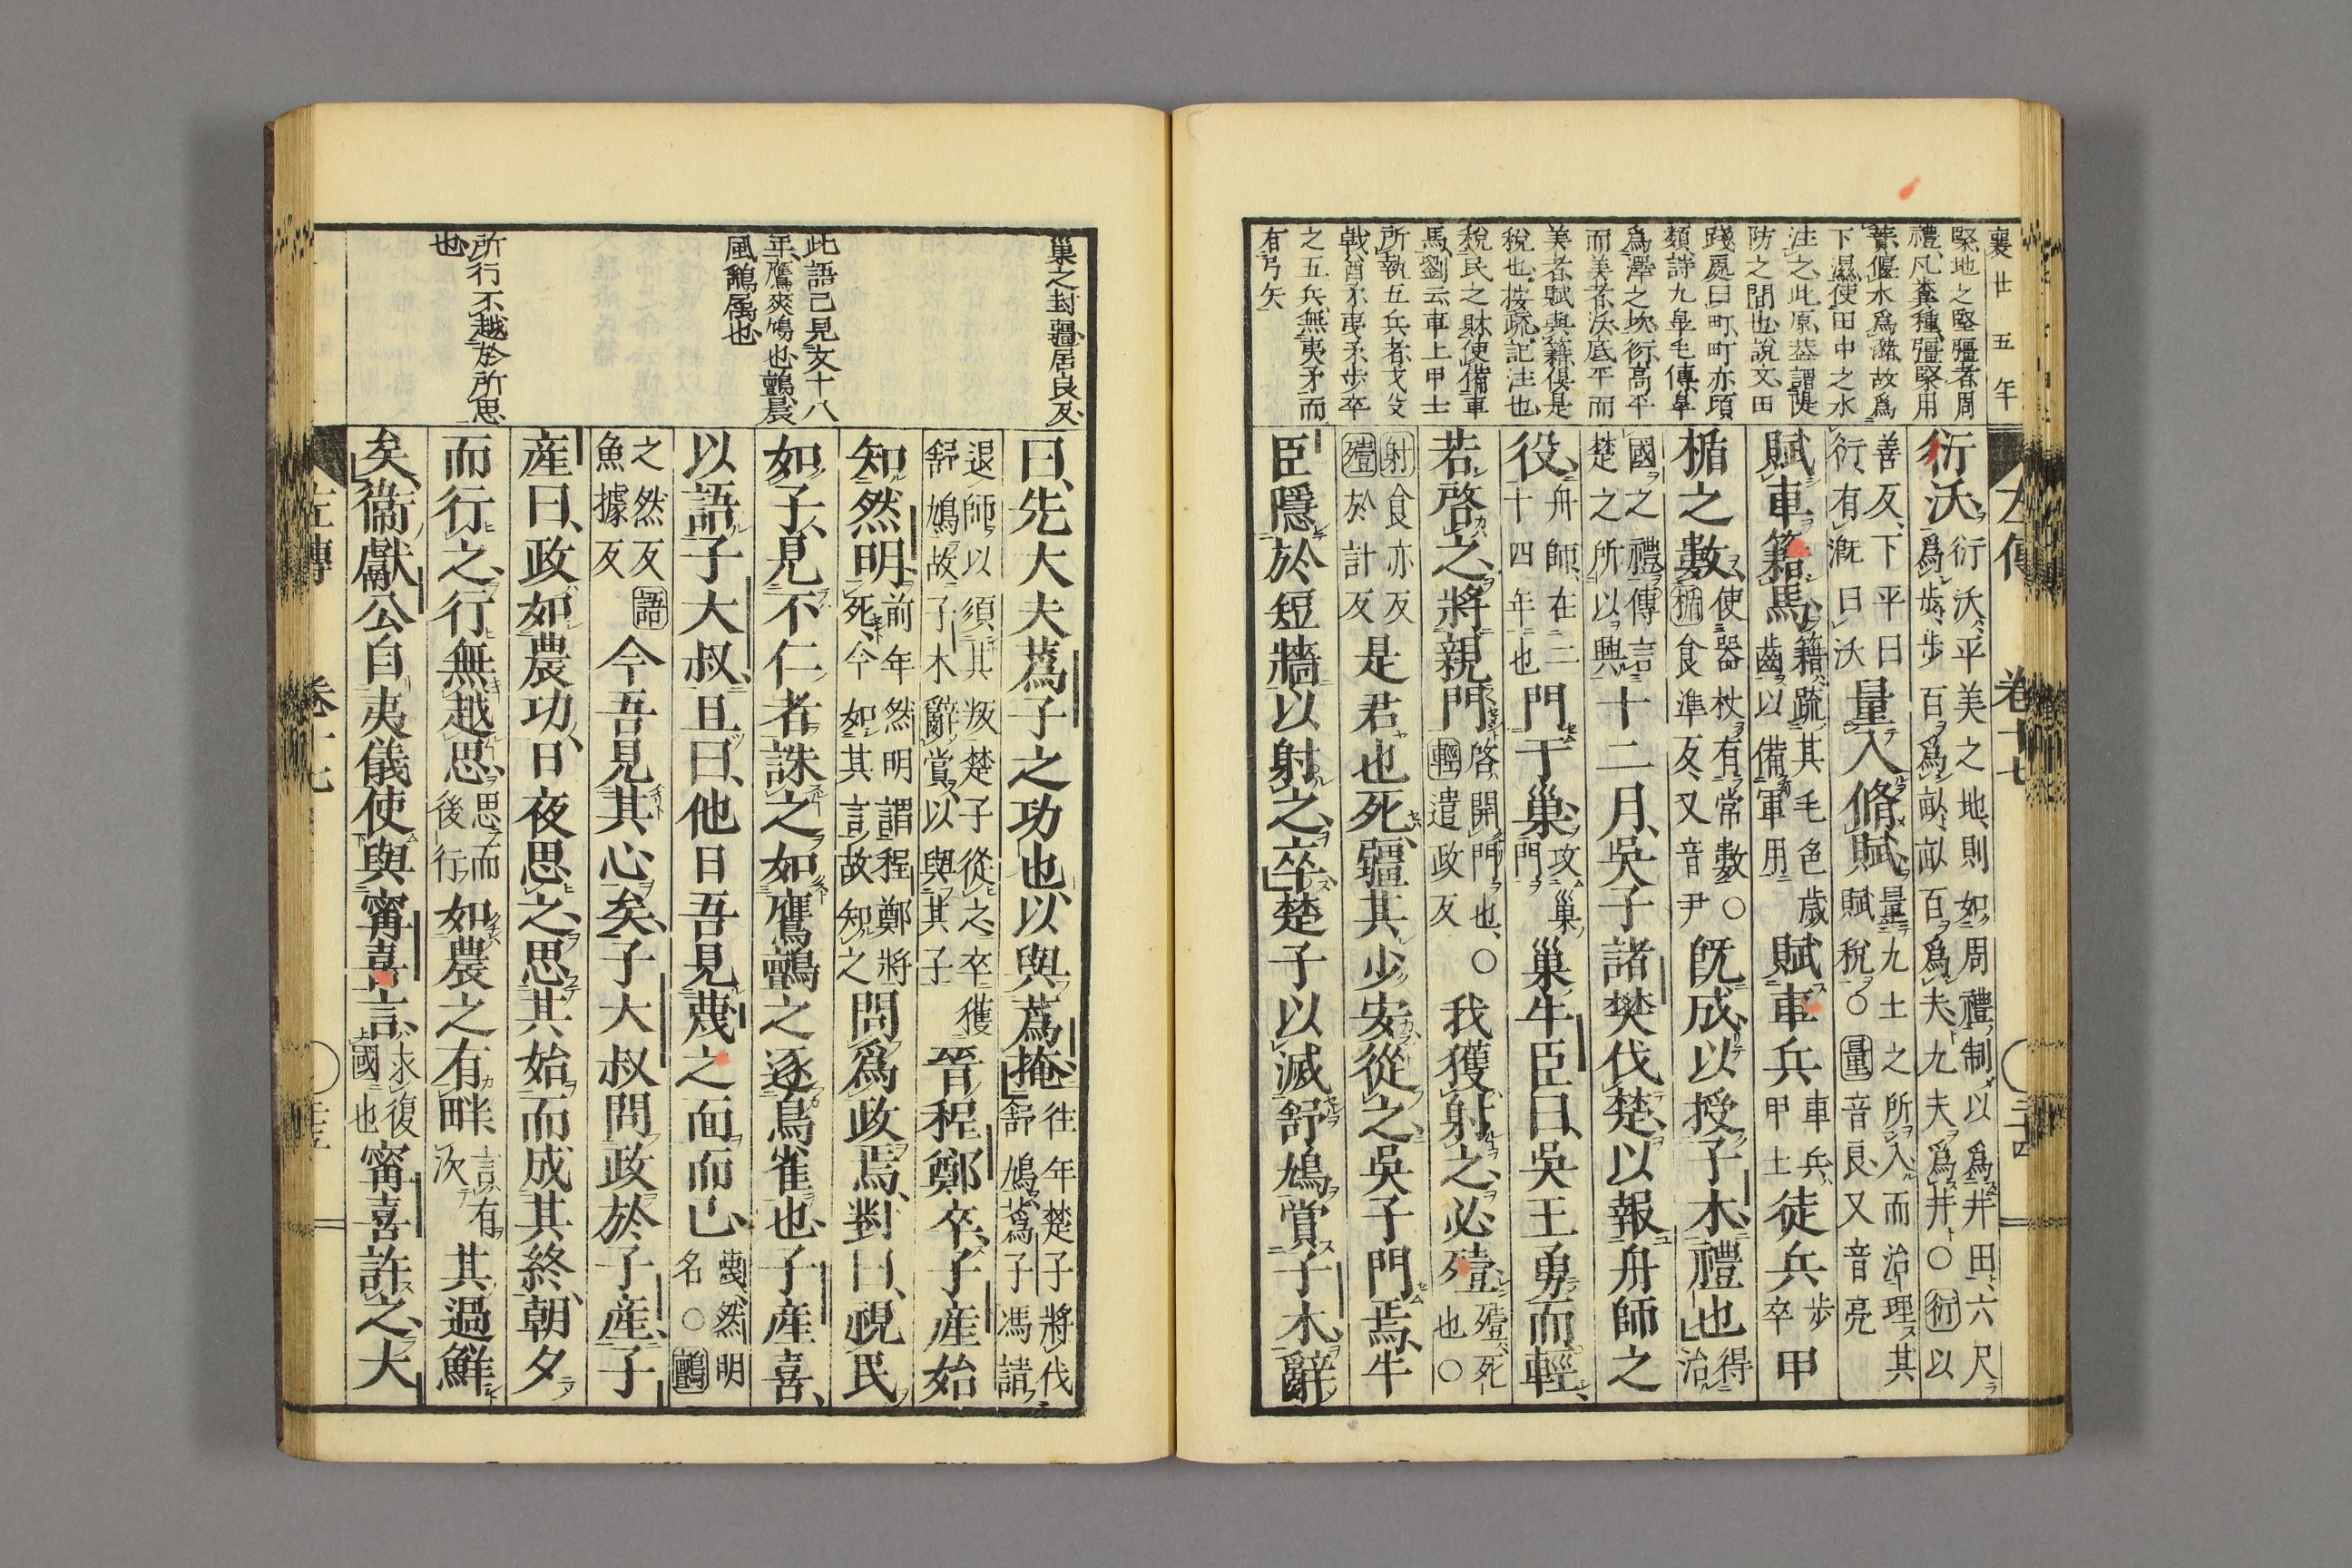 襄廿五年
堅地之堅彊者周
禮凡糞種彊堅用
蕡偃水爲瀦故爲
下濕使田中之水
注之此原葢謂隄
防之間也說文田
踐處曰町町亦頃
類詩九皐毛傳皐
爲澤之坎衍高平
而美者沃底平而
美者賦與籍俱是
稅也按疏記注也
稅民之財使備車
馬劉云車上甲士
所執五兵者戈殳
戟酋矛夷矛步卒
之五兵無夷矛而
有弓矢
左傳 卷十七 ○三十四
衍沃衍沃平美之地則如周禮制以爲井田六尺爲步步百爲畝畝百爲夫九夫爲井○衍以
善反下平曰衍有漑曰沃量入脩賦量九土之所入而治理其賦稅○量音良又音亮
賦車籍馬籍疏其毛色歲齒以備軍用賦車兵車兵甲士徒兵步卒甲
楯之數使器杖有常數○楯食準反又音尹既成以授子木禮也得治
國之禮傳言楚之所以興十二月吳子諸樊伐楚以報舟師之
役舟師在二十四年也門于巢攻巢門巢牛臣曰吳王勇而輕
若啓之將親門啓開門也○輕遣政反我獲射之必殪殪死也○
射食亦反殪於計反是君也死疆其少安從之吳子門焉牛
臣隱於短牆以射之卒楚子以滅舒鳩賞子木辭
巢之封疆居良反
此語已見文十八
年鷹爽鳩也鸇晨
風鷂屬也
所行不越於所思
也
曰先大夫蔿子之功也以與蔿掩往年楚子將伐舒鳩蔿子馮請
退師以須其叛楚子從之卒獲舒鳩故子木辭賞以與其子晉程鄭卒子產始
知然明前年然明謂程鄭將死今如其言故知之問爲政焉對曰視民
如子見不仁者誅之如鷹鸇之逐鳥雀也子產喜
以語子大叔且曰他日吾見蔑之面而已蔑然明名○鸇
之然反魚據反語今吾見其心矣子大叔問政於子產子
產曰政如農功日夜思之思其始而成其終朝夕
而行之行無越思思而後行如農之有畔言有次其過鮮
矣衞獻公自夷儀使與甯喜言求復國也甯喜許之大
左傳 卷十七 ○三十五